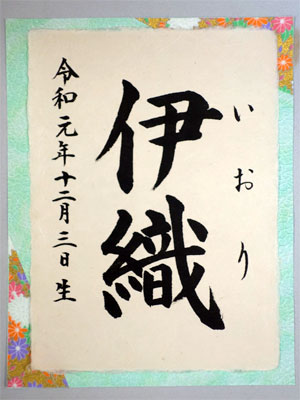 いおり
伊織
令和元年十二月三日生